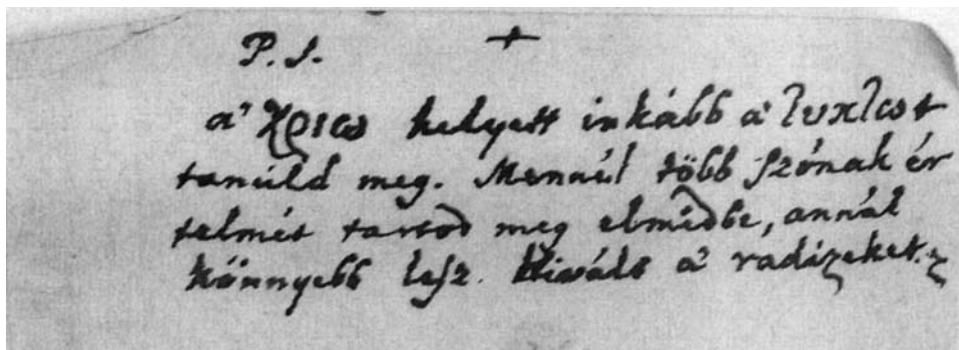 P.S. +
a' χριω helyett inkább a' τυπτωt
tanúld meg. Mennél több ſzónak ér
telmét tartod meg elmédbe, annál
könnyebb leſz. Kivált a' radixeket.